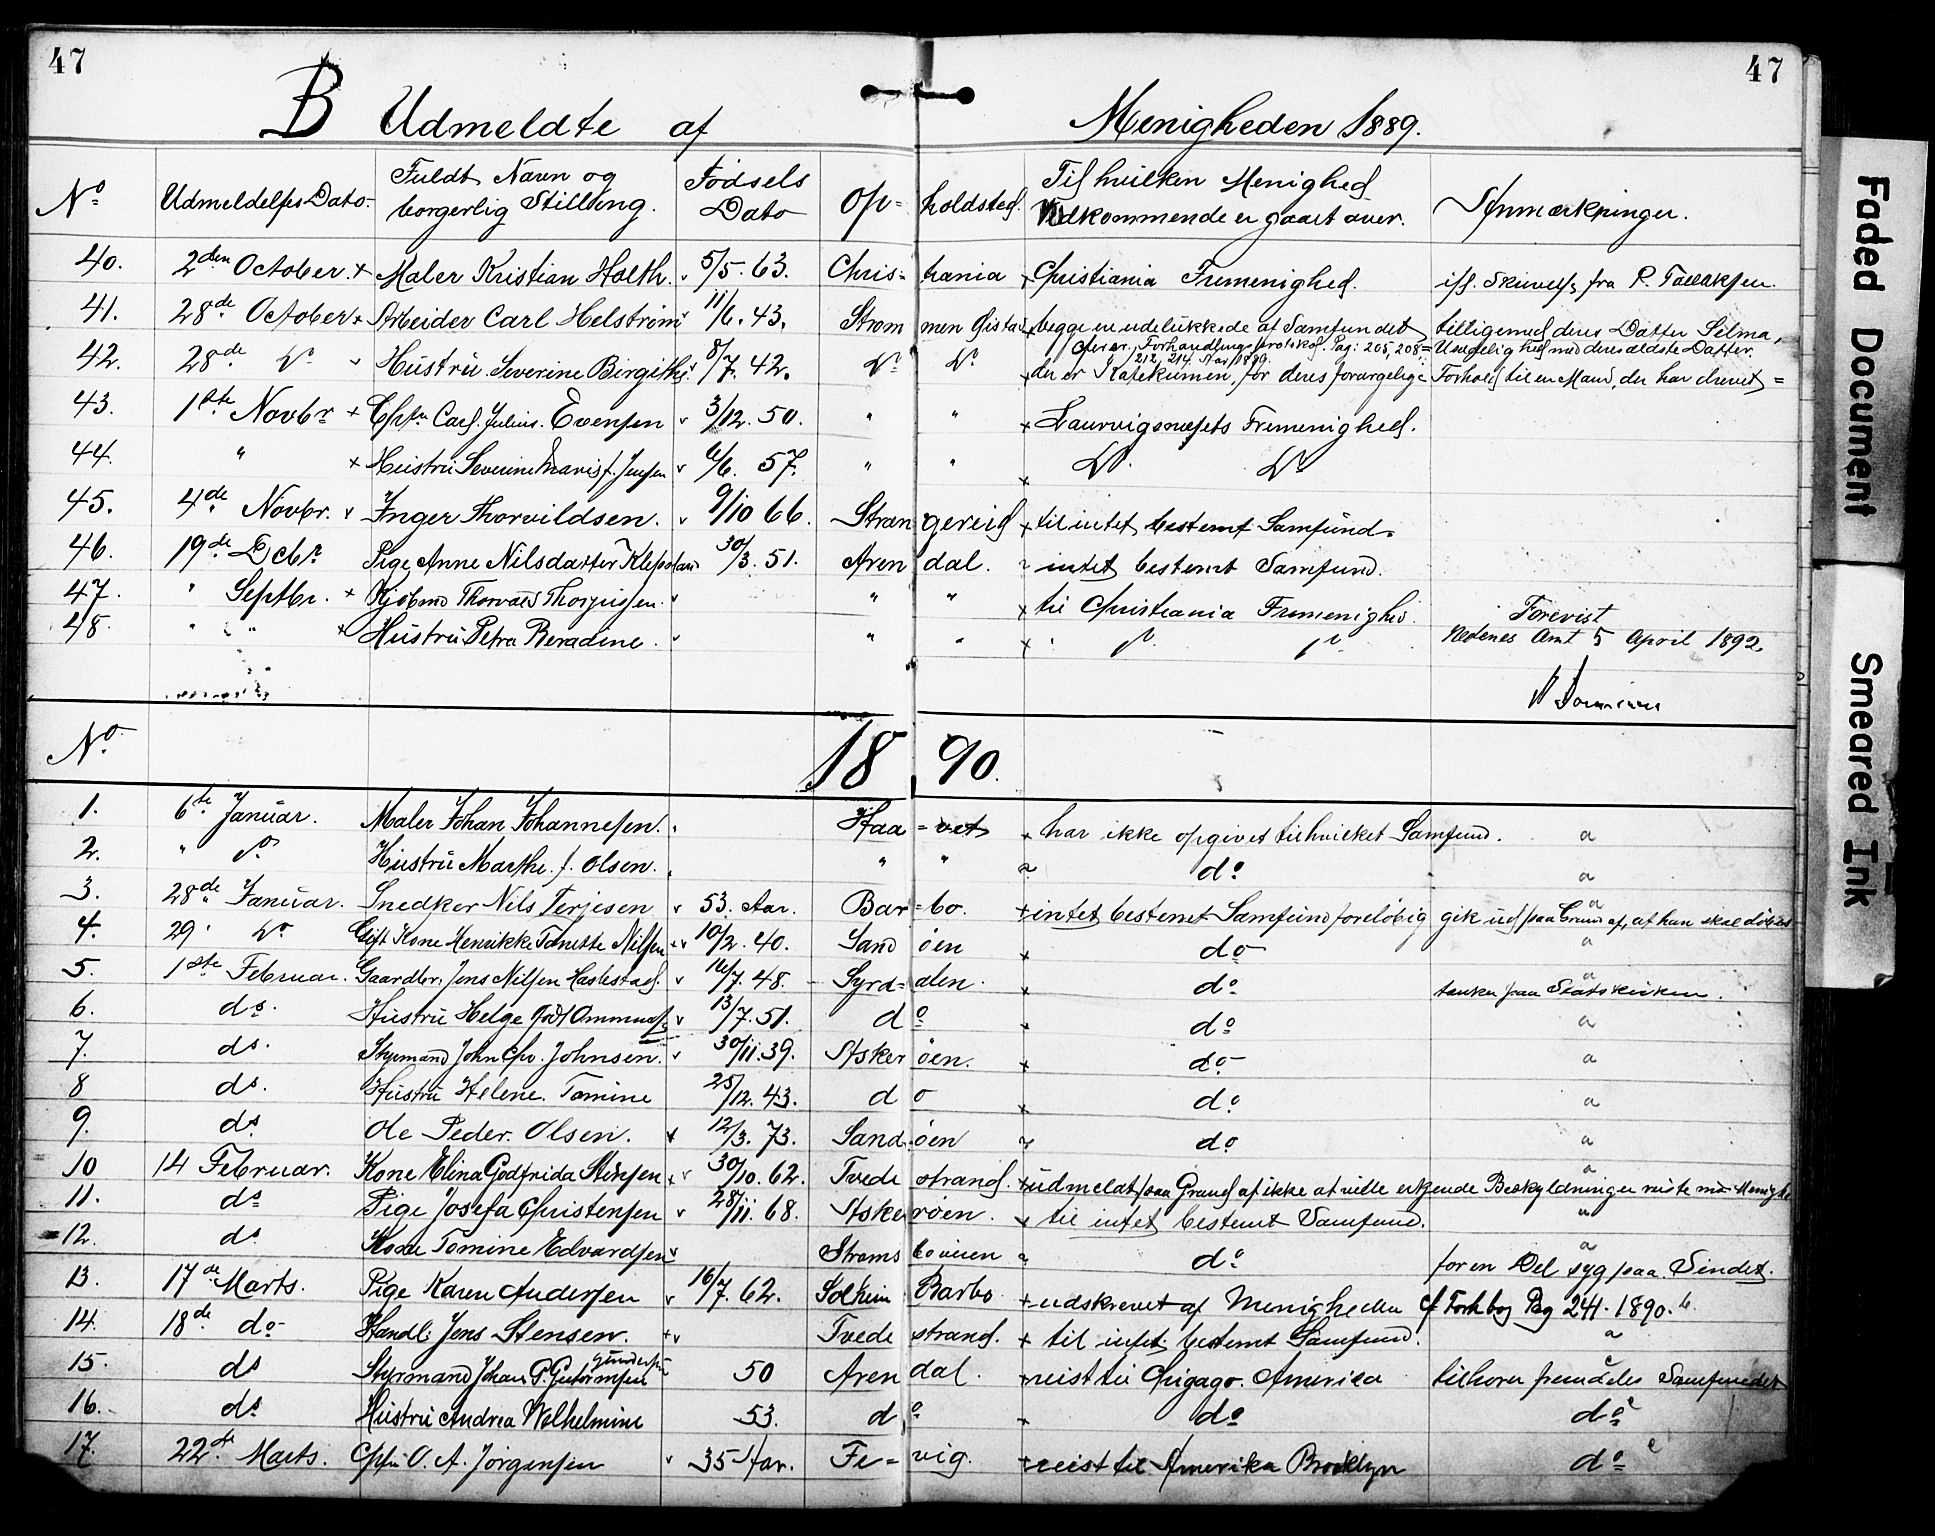 47
47
B Udmeldte af Menigheden 1889.
No Udmeldelses Dato. Fuldt Navn og borgerlig Stilling. Fødsels Dato Op-holdsted. Til hvilken Menighed Vedkommende er gaaet over. Anmærkninger.
40. 2den October. + Maler Kristian Holth. 5/5. 63. Chris-tiania + Christiania Frimenighed. ifl. Skrivelse fra P. Tallaksen.
41. 28de October + Arbeider Carl Helstrøm 11/6. 43. Strømmen + begge ere udelukkede af Samfundet tilligemed deres Datter Selma,
Forhandlingsprotokol. Pag: 205, 208= Uenighed med deres ældste Datter.
212, 214 Aar 1889.
42. 28de Do Hustru. Severine Birgithe 8/7. 42. Do Do der er Katekumen, for deres forargelige Forhold til en Mand, der har drevet =
43. 1ste Novbr + Cptn Carl. Julius. Evensen 3/12. 50. " " + Laurvigs Frimenighed.
44. " + Hustru Severine Marie f. Jensen 6/6. 57. " " + Do. Do
45. 4de Novbr. Inger Thorvildsen. 9/10 66. Stran gereid + til intet bestemt Samfund.
46. 19de Debr. Pige Anne Nilsdatter Klepsland 30/3. 51. Aren dal. intet bestemt Samfund.
47. " Septbr. + Kjøbmd Thorvald " " + til Christiania Frimenighed.
48. " " + Hustru Petra Beradine. " " + " Do. Do
Forevist
Nedenes Amt 5 April 1892.
No 18 90.
1. 6te Januar. Maler Johan Johannesen. Haa = vet + har ikke opgivet til hvilket Samfund. a
2. " Do Hustru Marthe. f. Olsen. " " do a
3. 28de Januar. Snedker Nils Terjesen 53. Aar. Bar = bo. + intet bestemt Samfund foreløbig gik ud paa Grund af, at han skal døbes a
4. 29 Do Gift Kone Henrikke Tonette Nilsen 10/2. 40. Sand øen + do a
5. 1ste Februar. Gaardbr. Jens Nilsen Haslestad. 16/7. 48. Syrd= alen. + do tænker paa Statskirken. a
6. do. Hustru Helge 13/7. 51. do + do a
7. do. Styrmand John Chr. Johnsen. 30/11. 39. Asker øen. + do a
8 do. Hustru Helene. Tomine 25/12. 43. d o + do a
9. do Ole Peder. Olsen. + 12/3. 73. Sand øen do a
10 14 Februar. Kone Elina Godfrida Stensen + 30/10. 62. Tvede strand. + udmeldt paa Grund af ikke at ville erkjende Beskyldninger a
11. do Pige Josefa Christensen 28/11. 68. Aske røen. + til intet bestemt Samfund. "
12. do Kone Tomine Edvardsen Strøms boveien do for en Del syg paa Sindet. a
13. 17de Marts. Pige Karen Andersen 16/7. 62. Solheim Barbo + udskrevet af Menigheden cf Forh bog Pag 241. 1890. b.
14. 18de do Handl. Jens Stensen. + Tvede strand. + til intet bestemt Samfund. a
15. do Styrmand Johan G. Guttormsen Gundersen 50 Aren dal. + reist til Chigago. America tilhører fremdeles Samfundet c
16. do Hustru Andrea Welhelmine 53. do + do do c
17. 22de Marts. Cptn. O. A. Jørgensen 35 Aar. Fe= vig. + reist til Amerika Brooklyn do c
Faded Document
Smeared Ink